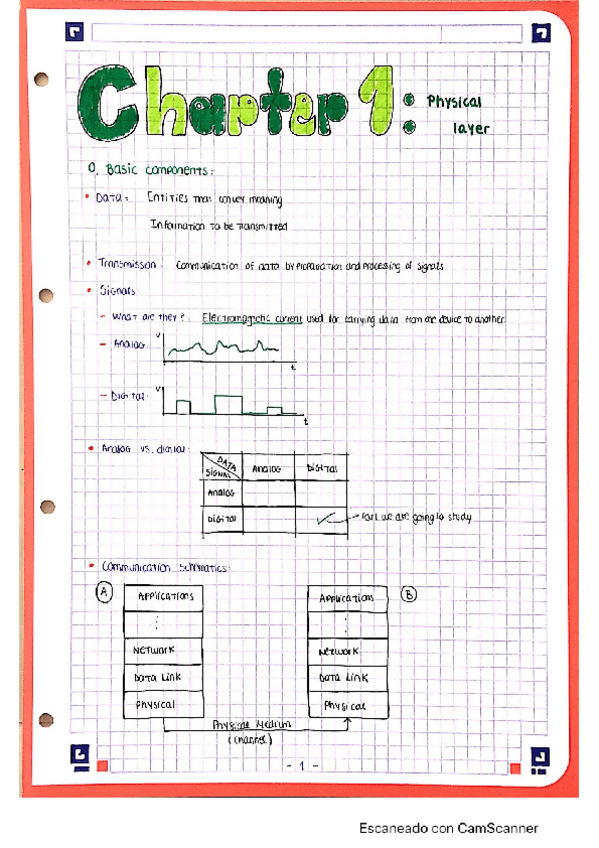 Chapter 1: Physical
layer
0. Basic components:
• Data: Entities that convey meaning
Information to be transmitted
• Transmission: Communication of data by propagation and processing of signals
• Signals:
- What are they?: Electromagnetic current used for carrying data from one device to another.
- Analog: V
t
- Digital: V
t
• Analog vs. digital:
DATA
SIGNAL
Analog
Digital
Analog
Digital
✓
Part we are going to study
• Communication schematics:
A
B
Applications
Applications
⋮
⋮
Network
Network
Data Link
Data Link
Physical
Physical
Physical Medium
(channel)
- 1 -
Escaneado con CamScanner